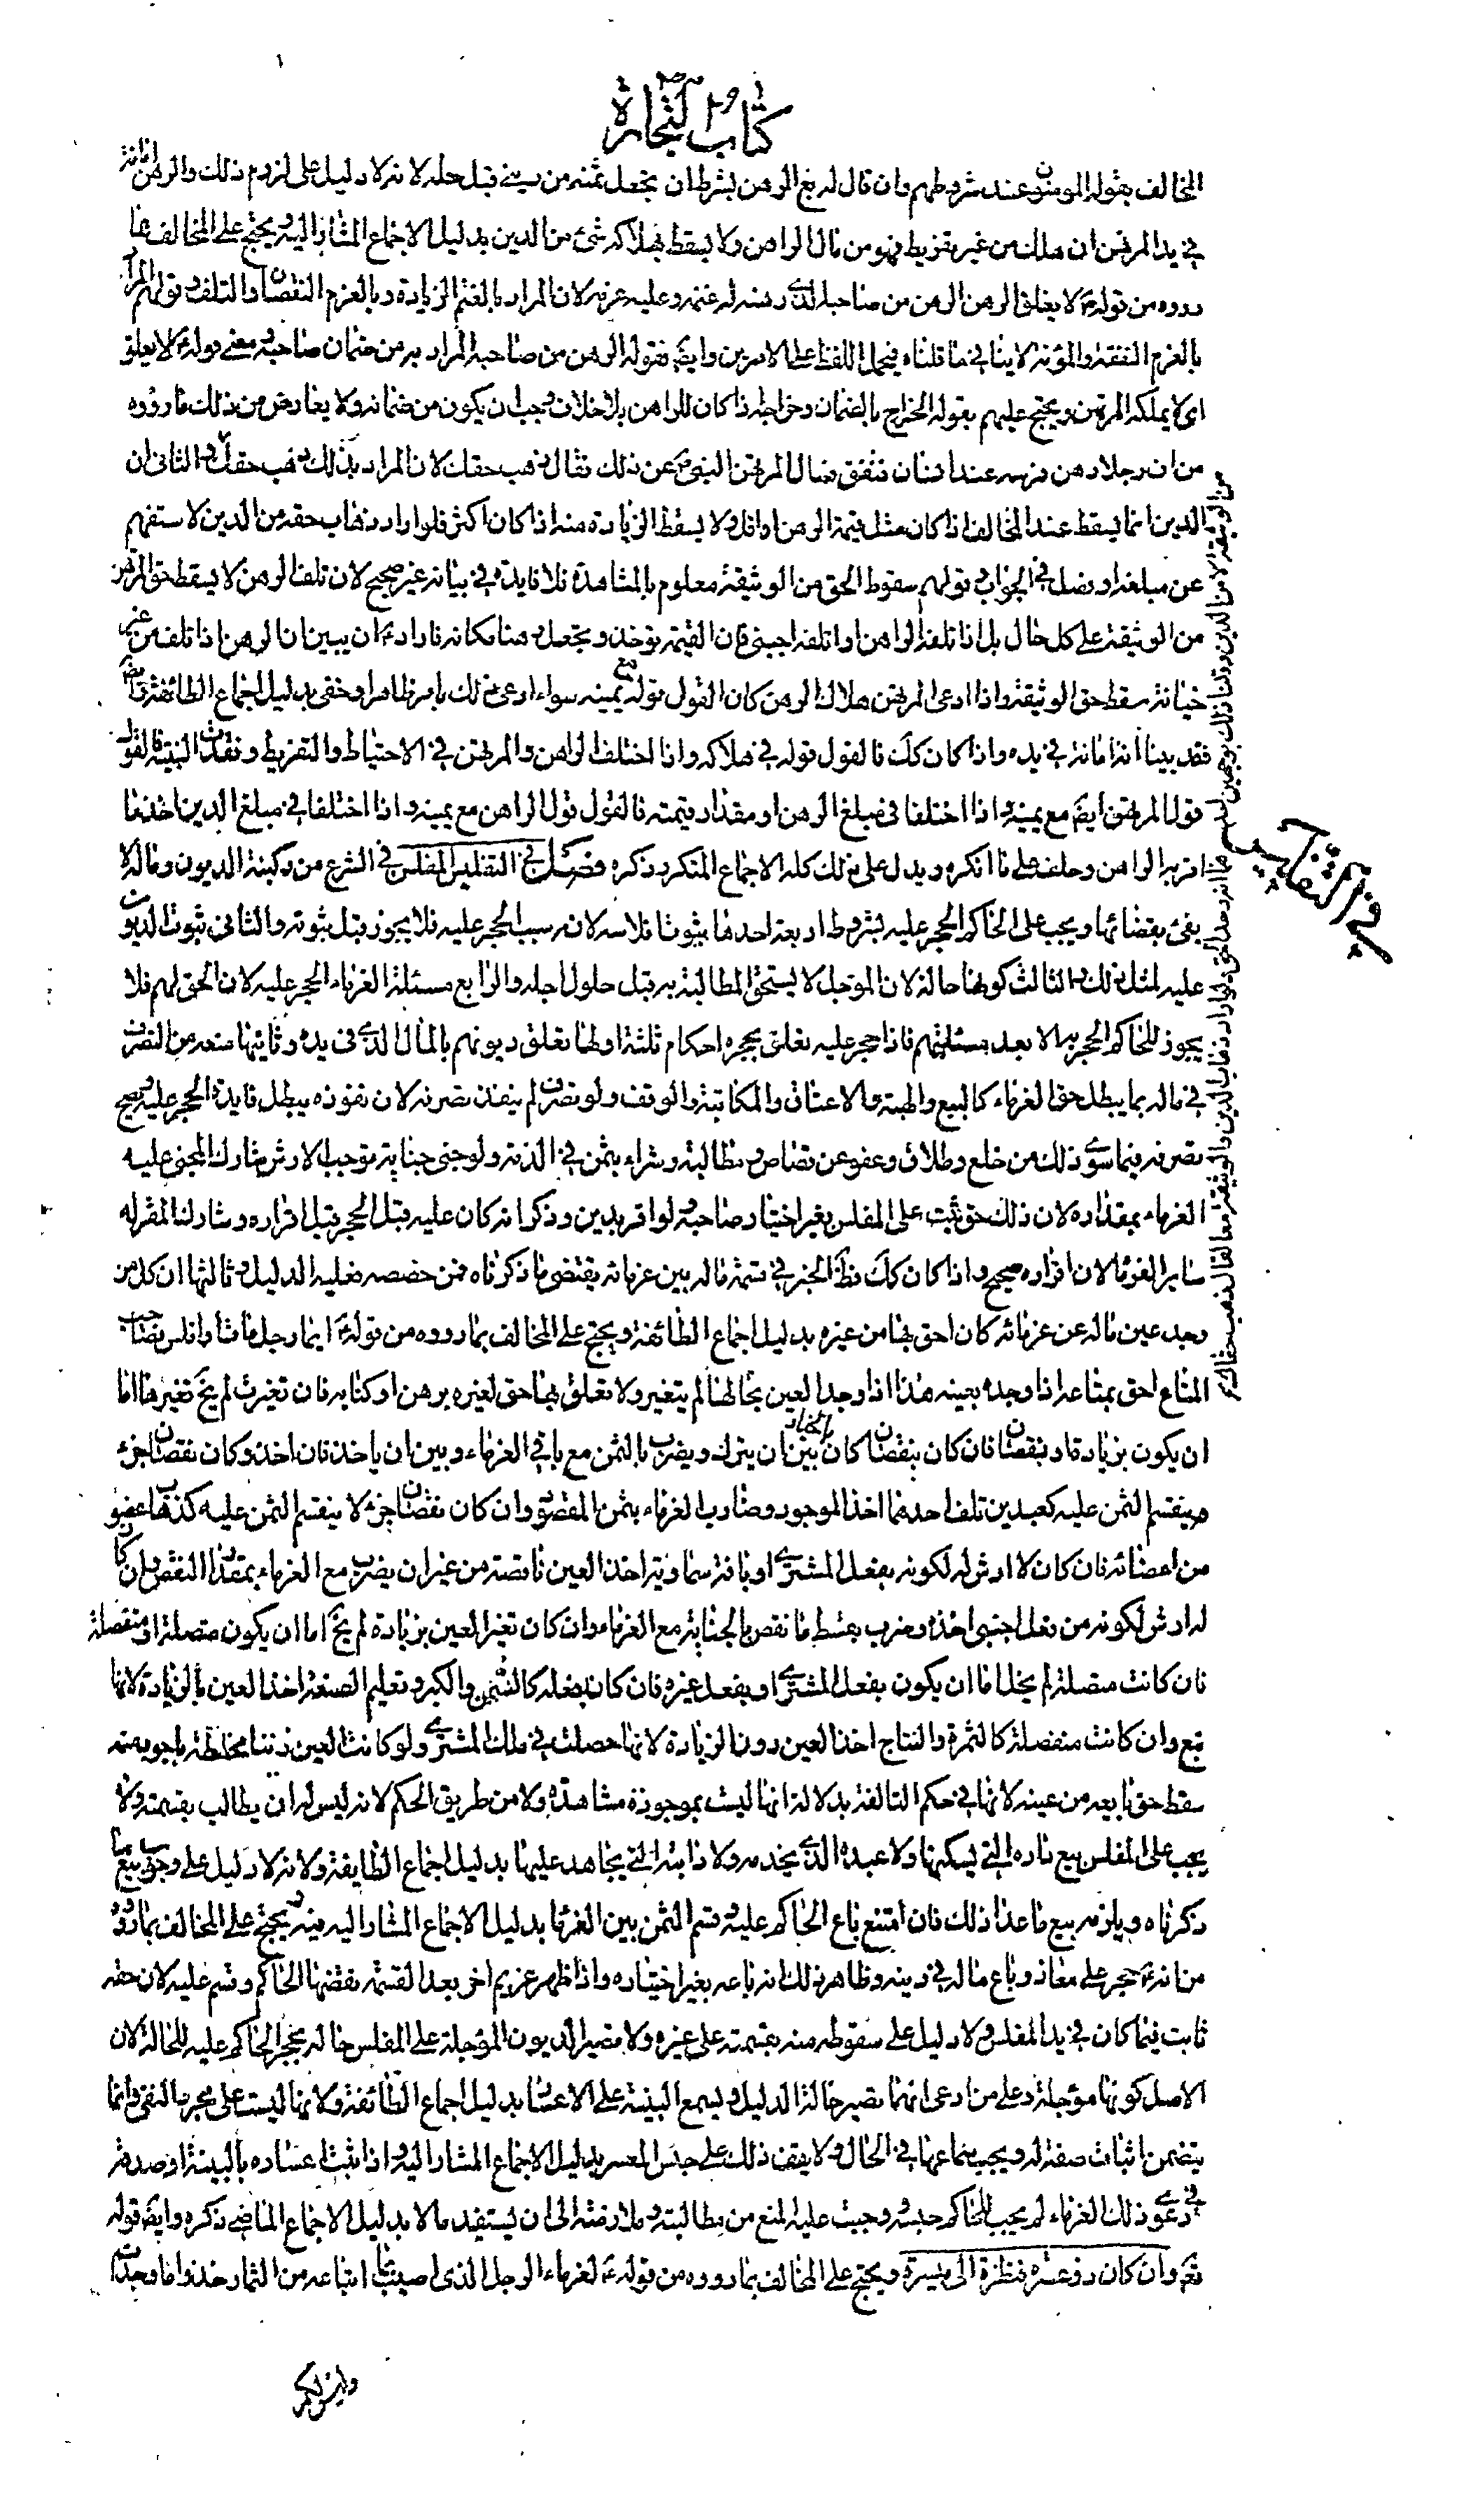 كتاب التجارة
المخالف بقوله المومنون عند شروطهم وان قال له بع الرهن بشرط ان تجعل ثمنه من ديني قبل حله لانه لا دليل على لزوم ذلك والرهن امانة
في يد المرتهن ان هلك من غير تفريط فهو من مال الراهن ولا يسقط بهلاكه شئ من الدين بدليل الاجماع المشار اليه ويحتج على المخالف بما
رووه من قوله ع لا يغلق الرهن الرهن من صاحبه الذي رهنه له غنمه وعليه غرمه لان المراد بالغنم الزيادة وبالغرم النقصان والتلف وقولهم المراد
بالغرم النفقة والمؤنة لا ينافي ما قلناه فيحمل اللفظ على الامرين وايضً فقوله الرهن من صاحبه المراد به من ضمان صاحبه ومعنى قوله ع لا يغلق
اى لا يملكه المرتهن ويحتج عليهم بقوله الخراج بالضمان وخراجه اذا كان للراهن بلا خلاف وجب ان يكون من ضمانه ولا يعارض من ذلك ما رووه
من ان رجلا رهن فرسه عند انسان فنفق فسال المرتهن النبي ص عن ذلك فقال ذهب حقك لان المراد بذلك ذهب حقك
الدين انما يسقط عند المخالف اذا كان مثل قيمة الرهن او اقل ولا يسقط الزيادة منه اذا كان اكثر فلو اراد ذهاب حقه من الدين لاستفهم
عن مبلغه او فصل في الجواب وقولهم سقوط الحق من الوثيقة معلوم بالمشاهدة فلا فايدة في بيانه غير صحيح لان تلف الرهن لا يسقط حق المرتهن
من الوثيقة على كل حال بل اذا تلفه الراهن او اتلفه اجنبي فان القيمة تؤخذ وتجعل رهنا مكانه فاراد ع ان يبين ان الرهن اذا تلف من غير
خيانة سقط حق الوثيقة واذا ادعى المرتهن هلاك الرهن كان القول قوله مع يمينه سواء ادعى ذلك بامر ظاهر او خفى بدليل اجماع الطائفة وايضً
فقد بينا انه امانة في يده واذا كان كك فالقول قوله في هلاكه واذا اختلف الراهن والمرتهن في الاحتياط والتفريط وفقدت البينة فالقول
قول المرتهن ايضً مع يمينه واذا اختلفا في مبلغ الرهن او مقدار قيمته فالقول قول الراهن مع يمينه واذا اختلفا في مبلغ الدين اخذ ما
اقر به الراهن وحلف على ما انكره ويدل على ذلك كله الاجماع المتكرر ذكره فصل في التفليس المفلس في الشرع من ركبته الديون وماله لا
يفي بقضائها ويجب على الحاكم الحجر عليه بشروط اربعة احدها ثبوت افلاسه لانه سبب الحجر عليه فلا يجوز قبل ثبوته والثاني ثبوت الديون
عليه لمثل ذلك الثالث كونها حالة لان المؤجل لا يستحق المطالبة به قبل حلول اجله والرابع مسئلة الغرماء الحجر عليه لان الحق لهم فلا
يجوز للحاكم الحجر به الا بعد مسئلتهم فاذا حجر عليه تعلق بحجره احكام ثلثة اولها تعلق ديونهم بالمال الذي في يده وثانيها منعه من التصرف
في ماله بما يبطل حق الغرماء كالبيع والهبة والاعتاق والمكاتبة والوقف ولو تصرف لم ينفذ تصرفه لان نفوذه يبطل فايدة الحجر عليه ويصح
تصرفه فيما سوى ذلك من خلع وطلاق وعفو عن قصاص ومطالبة وشراء بثمن في الذمة ولو جنى جناية توجب الارش شارك المجني عليه
الغرماء بمقداره لان ذلك حق ثبت على المفلس بغير اختيار صاحبه ولو اقر بدين وذكر انه كان عليه قبل الحجر قبل اقراره وشارك المقر له
ساير الغرما لان اقراره صحيح واذا كان كك فظً الخبر في قسمة ماله بين غرمائه يقتضي ما ذكرناه فمن خصصه فعليه الدليل وثالثها ان كل من
وجد عين ماله عن غرمائه كان احق بها من غيره بدليل اجماع الطائفة ويحتج على المخالف بما رووه من قوله ع ايما رجل مات او افلس فصاحب
المتاع احق بمتاعه اذا وجده بعينه هذا اذا وجد العين بحالها لم يتغير ولا تعلق بها حق لغيره برهن او كتابة فان تغيرت لم يخً تغيرها اما
ان يكون بزيادة او نقصان فان كان بنقصان كان بالخيار بين ان يترك ويضرب بالثمن مع باقي الغرماء وبين ان ياخذ فان اخذ وكان نقصان جزء
وينقسم الثمن عليه كعبدين تلف احدهما اخذ الموجود وضارب الغرماء بثمن المفقود وان كان نقصان جزء لا ينقسم الثمن عليه كذهاب عضو
من اعضائه فان كان لا ارش له لكونه بفعل المشتري او بافة سماوية اخذ العين ناقصة من غير ان يضرب مع الغرماء بمقدار النقص وان كان
له ارش لكونه من فعل اجنبي اخذه وضرب بقسط ما نقص بالجناية مع الغرماء وان كان تغير العين بزيادة لم يخً اما ان يكون متصلة او منفصلة
فان كانت متصلة لم يخل اما ان يكون بفعل المشتري او بفعل غيره فان كان بفعله كالسمن والكبر وتعليم الصنعة اخذ العين بالزيادة لانها
تبع وان كانت منفصلة كالثمرة والنتاج اخذ العين دون الزيادة لانها حصلت في ملك المشتري ولو كانت العين زيتا فخلطه باجود منه
سقط حق بايعه من عينه لانها في حكم التالفة بدلالة انها ليست بموجودة مشاهدة ولا من طريق الحكم لانه ليس له ان يطالب بقسمته ولا
يجب على المفلس بيع داره التي يسكنها ولا عبده الذي يخدمه ولا دابته التي يجاهد عليها بدليل اجماع الطايفة ولانه لا دليل على وجوب بيع ما
ذكرناه ويلزمه بيع ما عدا ذلك فان امتنع باع الحاكم عليه وقسم الثمن بين الغرما بدليل الاجماع المشار اليه ويحتج على المخالف بما رووه
من انه ع حجر على معاذ وباع ماله في دينه وظاهر ذلك انه باعه بغير اختياره واذا ظهر غريم اخر بعد القسمة نقضها الحاكم وقسم عليه لان حقه
ثابت فيما كان في يد المفلس ولا دليل على سقوطه منه بقسمته على غيره ولا تصير الديون المؤجلة على المفلس حالة بحجر الحاكم عليه للحالة لان
الاصل كونها مؤجلة وعلى من ادعى انها تصير حالة الدليل ويسمع البينة على الاعسار بدليل اجماع الطائفة ولانها ليست على مجرد النفي وانما
يتضمن اثبات صفة له ويجب سماعها في الحال ولا يقف ذلك على حبس المعسر بدليل الاجماع المشار اليه واذا ثبت اعساره بالبينة او صدقه
في دعوى ذلك الغرماء لم يجب للحاكم حبسه وجبت عليه المنع من مطالبته وملازمته الى ان يستفيد مالا بدليل الاجماع الماضي ذكره وايضً قوله
تعً وان كان ذو عسرة فنظرة الى ميسرة ويحتج على المخالف بما رووه من قوله ع لغرماء الرجل الذي اصيب بما ابتاعه من الثمار خذوا ما وجدتم
وليس لكم
من الوثيقة لا من الدين وقلنا ذلك بوجهين
انه وحد الحق ولو اراد ذهاب الدين والوثيقة معا لقال ذهب حقاك
في التفليس